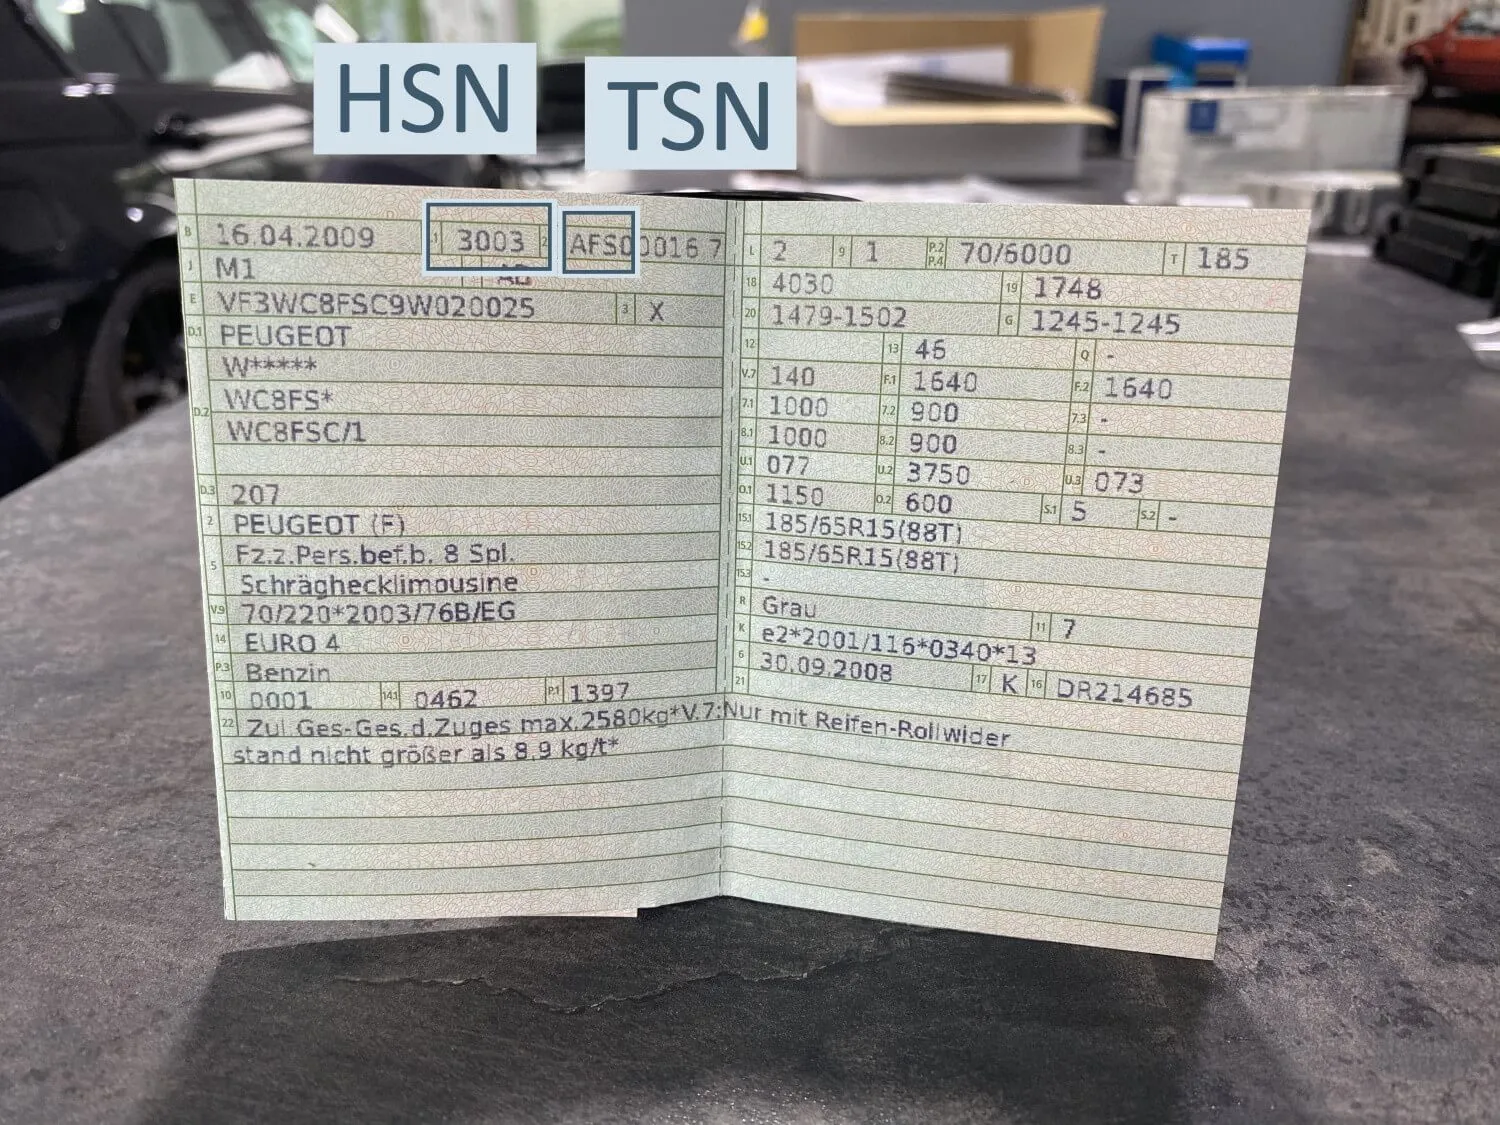 HSN
TSN
B 16.04.2009 1 3003 2 AFS00016 7
J M1
E VF3WC8FSC9W020025 3 X
D.1 PEUGEOT
W*****
D.2 WC8FS*
WC8FSC/1
D.3 207
2 PEUGEOT (F)
5 Fz.z.Pers.bef.b. 8 Spl.
Schräghecklimousine
V.9 70/220*2003/76B/EG
14 EURO 4
P.3 Benzin
10 0001 14.1 0462 P.1 1397
L 2 9 1 P.2 P.4 70/6000 T 185
18 4030 19 1748
20 1479-1502 G 1245-1245
12 13 46 Q -
V.7 140 F.1 1640 F.2 1640
7.1 1000 7.2 900 7.3 -
8.1 1000 8.2 900 8.3 -
U.1 077 U.2 3750 U.3 073
O.1 1150 O.2 600 S.1 5 S.2 -
15.1 185/65R15(88T)
15.2 185/65R15(88T)
15.3 -
R Grau 11 7
K e2*2001/116*0340*13
6 30.09.2008 17 K 16 DR214685
21
22 Zul Ges-Ges.d.Zuges max.2580kg*V.7:Nur mit Reifen-Rollwider
stand nicht größer als 8,9 kg/t*